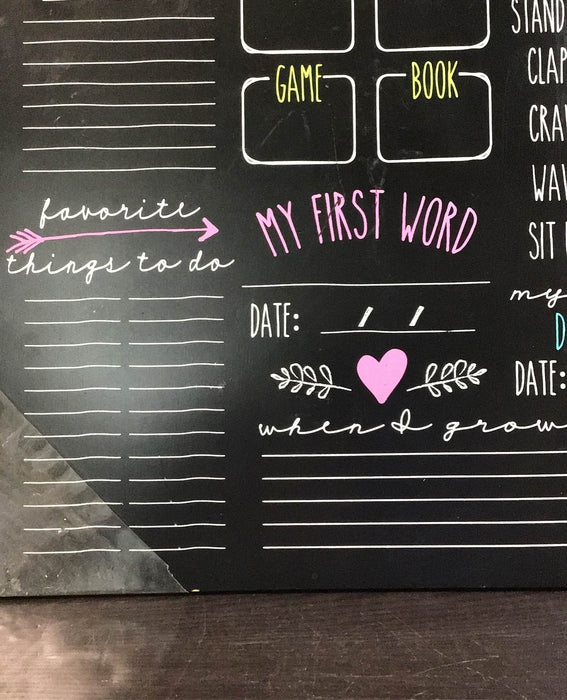 GAME BOOK
favorite
things to do
MY FIRST WORD
DATE: / /
when I grow
STAND
CLAP
WAV
SIT
my
DATE: